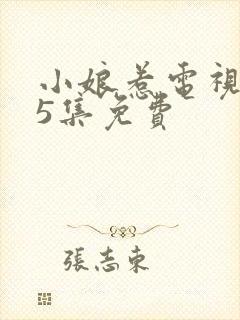 小娘惹電視
5集免費
張志東